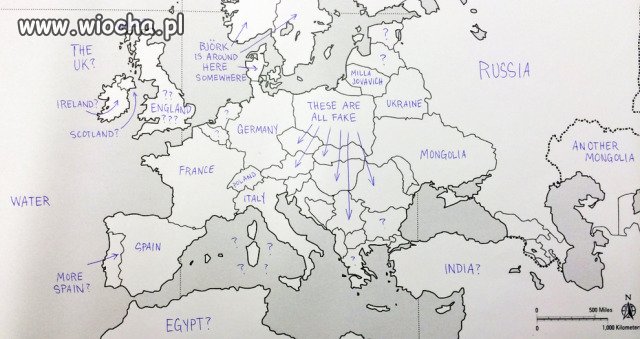 www.wiocha.pl
THE
UK?
BJÖRK
IS AROUND
HERE
SOMEWHERE
?
?
RUSSIA
MILLA
JOVAVICH
IRELAND?
??
ENGLAND
???
SCOTLAND?
?
?
GERMANY
THESE ARE
ALL FAKE
UKRAINE
FRANCE
MONGOLIA
ANOTHER
MONGOLIA
POLAND
ITALY
WATER
SPAIN
?
?
?
?
?
?
MORE
SPAIN?
INDIA?
EGYPT?
N
0
500 Miles
0
1,000 Kilometers